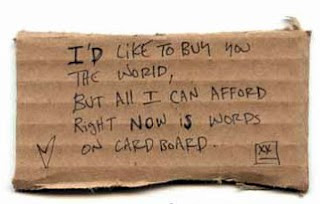 I'D LIKE TO BUY YOU
THE WORLD,
BUT All I CAN AFFORD
RigHT NOW iS WORDS
ON CARDBOARD.